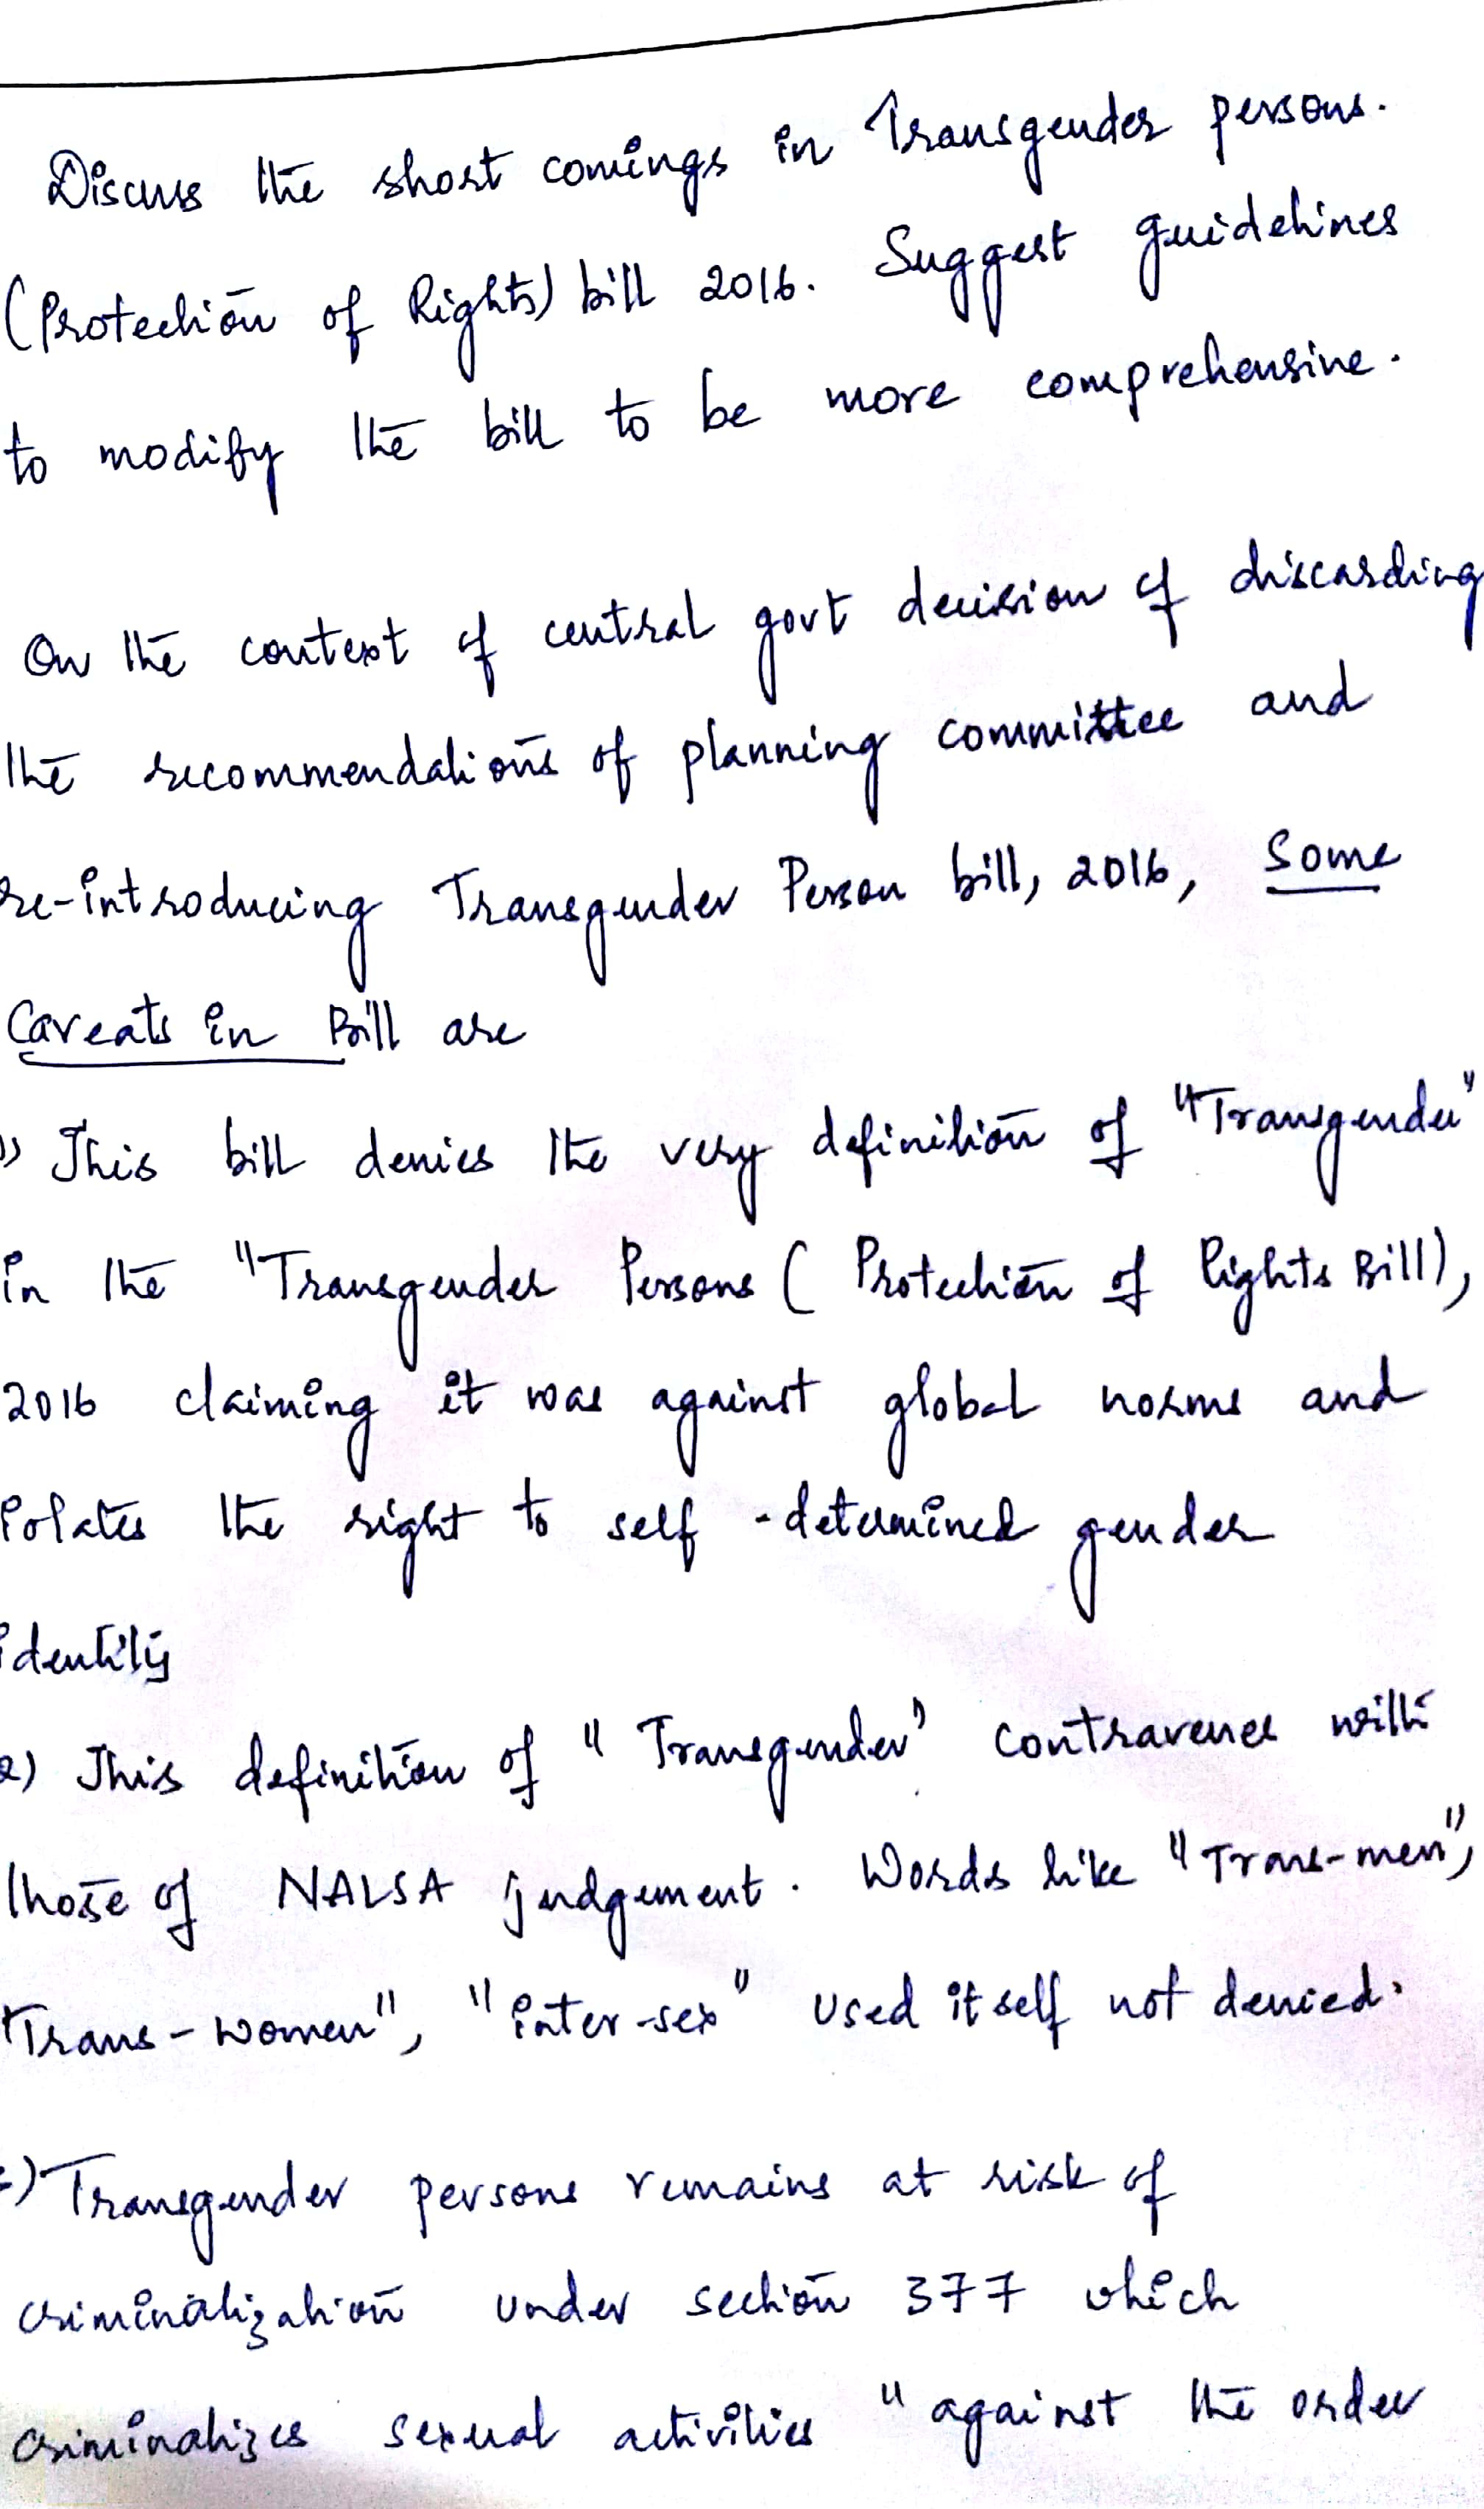 Discuss the short comings in Transgender persons.
(Protection of Rights) bill 2016. Suggest guidelines
to modify the bill to be more comprehensive.
On the context of central govt decision of discarding
the recommendations of planning committee and
re-introducing Transgender Person bill, 2016, Some
Caveats in Bill are
1) This bill denies the very definition of "Transgender"
in the "Transgender Persons ( Protection of Rights Bill),
2016 claiming it was against global norms and
iolates the right to self-determined gender
identity
2) This definition of "Transgender" contravenes with
those of NALSA judgement. Words like "Trans-men",
"Trans-women", "inter-sex" used itself not denied.
) Transgender persons remains at risk of
criminalization under section 377 which
criminalizes sexual activities "against the order